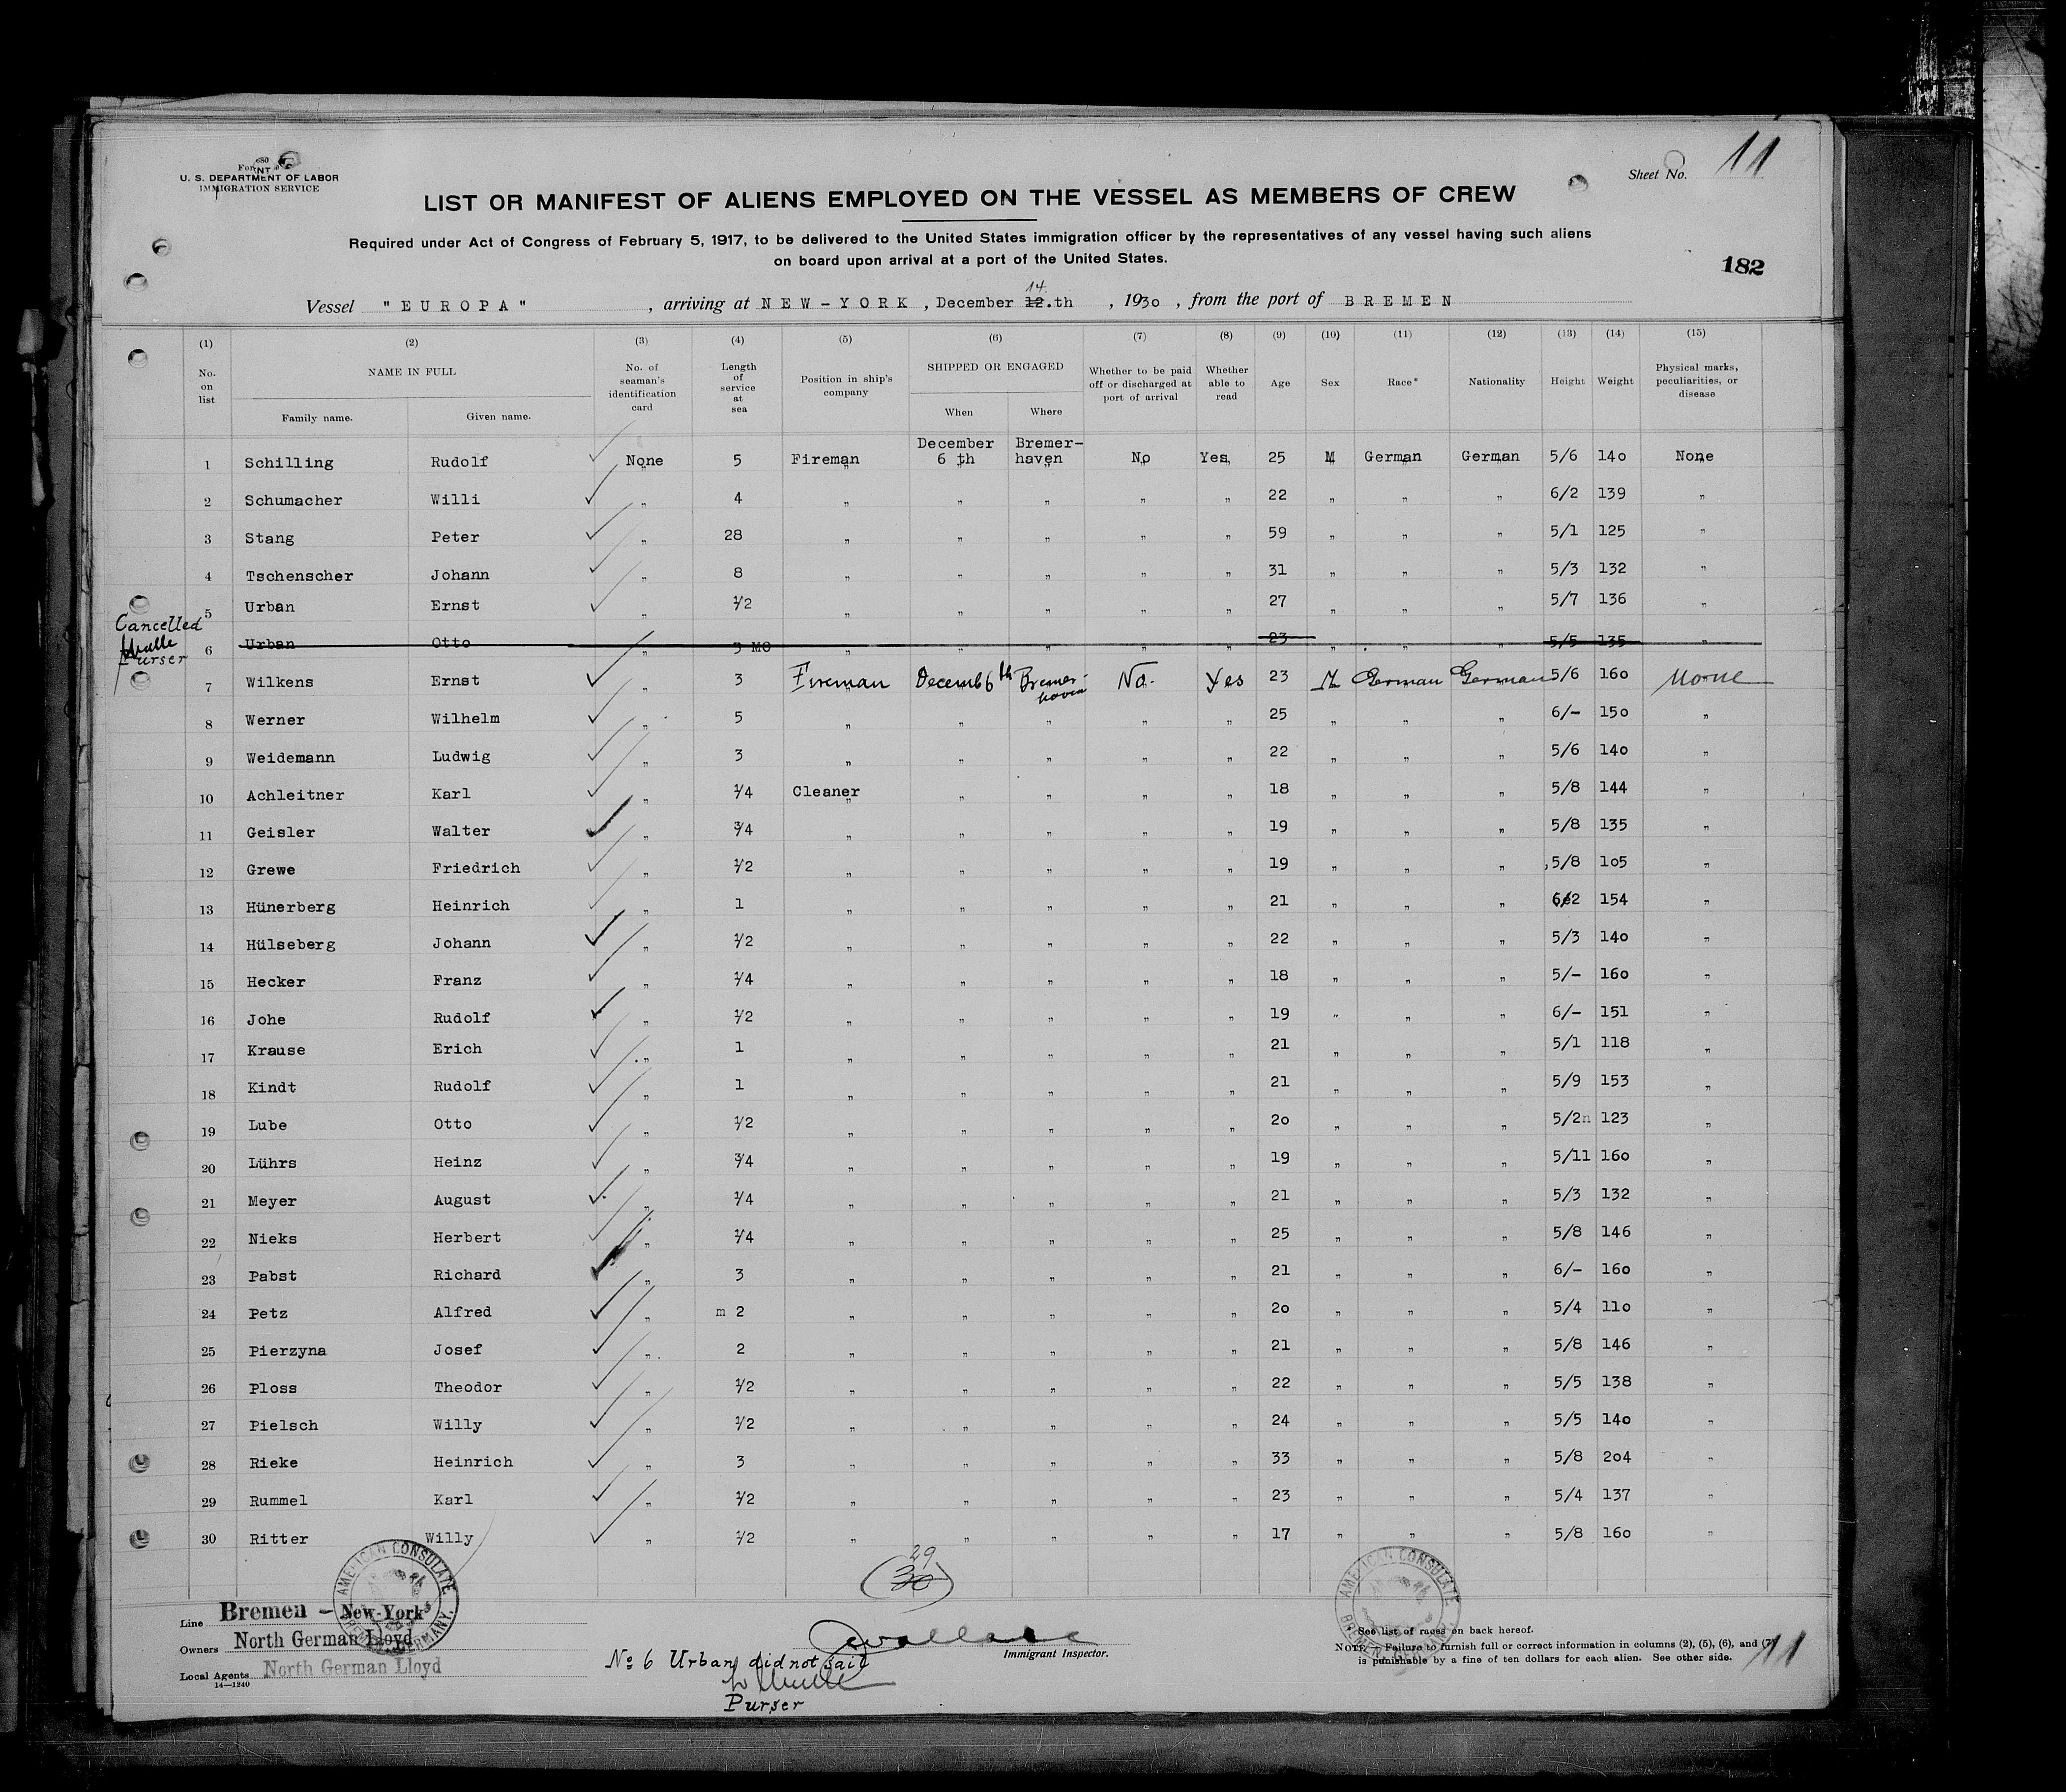 Form 680
U. S. DEPARTMENT OF LABOR
IMMIGRATION SERVICE
Sheet No. 11
LIST OR MANIFEST OF ALIENS EMPLOYED ON THE VESSEL AS MEMBERS OF CREW
Required under Act of Congress of February 5, 1917, to be delivered to the United States immigration officer by the representatives of any vessel having such aliens
on board upon arrival at a port of the United States.
182
14
Vessel "EUROPA", arriving at NEW-YORK, December 12.th, 1930, from the port of BREMEN
(1) (2) (3) (4) (5) (6) (7) (8) (9) (10) (11) (12) (13) (14) (15)
No. on list NAME IN FULL Family name. Given name. No. of seaman's identification card Length of service at sea Position in ship's company SHIPPED OR ENGAGED When Where Whether to be paid off or discharged at port of arrival Whether able to read Age Sex Race* Nationality Height Weight Physical marks, peculiarities, or disease
1 Schilling Rudolf None 5 Fireman December 6 th Bremerhaven No Yes 25 M German German 5/6 140 None
2 Schumacher Willi „ 4 „ „ „ „ „ 22 „ „ „ 6/2 139 „
3 Stang Peter „ 28 „ „ „ „ „ 59 „ „ „ 5/1 125 „
4 Tschenscher Johann „ 8 „ „ „ „ „ 31 „ „ „ 5/3 132 „
5 Urban Ernst „ 1/2 „ „ „ „ „ 27 „ „ „ 5/7 136 „
Cancelled
Purser
6 Urban Otto „ 3 MO „ „ „ „ „ 23 „ „ „ 5/5 135 „
7 Wilkens Ernst „ 3 Fireman Decemb 6th Bremerhaven No. Yes 23 M German German 5/6 160 None
8 Werner Wilhelm „ 5 „ „ „ „ „ 25 „ „ „ 6/- 150 „
9 Weidemann Ludwig „ 3 „ „ „ „ „ 22 „ „ „ 5/6 140 „
10 Achleitner Karl „ 1/4 Cleaner „ „ „ „ 18 „ „ „ 5/8 144 „
11 Geisler Walter „ 3/4 „ „ „ „ „ 19 „ „ „ 5/8 135 „
12 Grewe Friedrich „ 1/2 „ „ „ „ „ 19 „ „ „ 5/8 105 „
13 Hünerberg Heinrich „ 1 „ „ „ „ „ 21 „ „ „ 6/2 154 „
14 Hülseberg Johann „ 1/2 „ „ „ „ „ 22 „ „ „ 5/3 140 „
15 Hecker Franz „ 1/4 „ „ „ „ „ 18 „ „ „ 5/- 160 „
16 Johe Rudolf „ 1/2 „ „ „ „ „ 19 „ „ „ 6/- 151 „
17 Krause Erich „ 1 „ „ „ „ „ 21 „ „ „ 5/1 118 „
18 Kindt Rudolf „ 1 „ „ „ „ „ 21 „ „ „ 5/9 153 „
19 Lube Otto „ 1/2 „ „ „ „ „ 20 „ „ „ 5/2 123 „
20 Lührs Heinz „ 3/4 „ „ „ „ „ 19 „ „ „ 5/11 160 „
21 Meyer August „ 1/4 „ „ „ „ „ 21 „ „ „ 5/3 132 „
22 Nieks Herbert „ 1/4 „ „ „ „ „ 25 „ „ „ 5/8 146 „
23 Pabst Richard „ 3 „ „ „ „ „ 21 „ „ „ 6/- 160 „
24 Petz Alfred „ m 2 „ „ „ „ „ 20 „ „ „ 5/4 110 „
25 Pierzyna Josef „ 2 „ „ „ „ „ 21 „ „ „ 5/8 146 „
26 Ploss Theodor „ 1/2 „ „ „ „ „ 22 „ „ „ 5/5 138 „
27 Pielsch Willy „ 1/2 „ „ „ „ „ 24 „ „ „ 5/5 140 „
28 Rieke Heinrich „ 3 „ „ „ „ „ 33 „ „ „ 5/8 204 „
29 Rummel Karl „ 1/2 „ „ „ „ „ 23 „ „ „ 5/4 137 „
30 Ritter Willy „ 1/2 „ „ „ „ „ 17 „ „ „ 5/8 160 „
29
(30)
AMERICAN CONSULATE BREMEN, GERMANY.
AMERICAN CONSULATE BREMEN, GERMANY.
Line Bremen - New-York
Owners North German Lloyd
Local Agents North German Lloyd
14—1240
No 6 Urban did not sail
Purser
Immigrant Inspector.
See list of races on back hereof.
NOTE.—Failure to furnish full or correct information in columns (2), (5), (6), and (7)
is punishable by a fine of ten dollars for each alien. See other side.
11